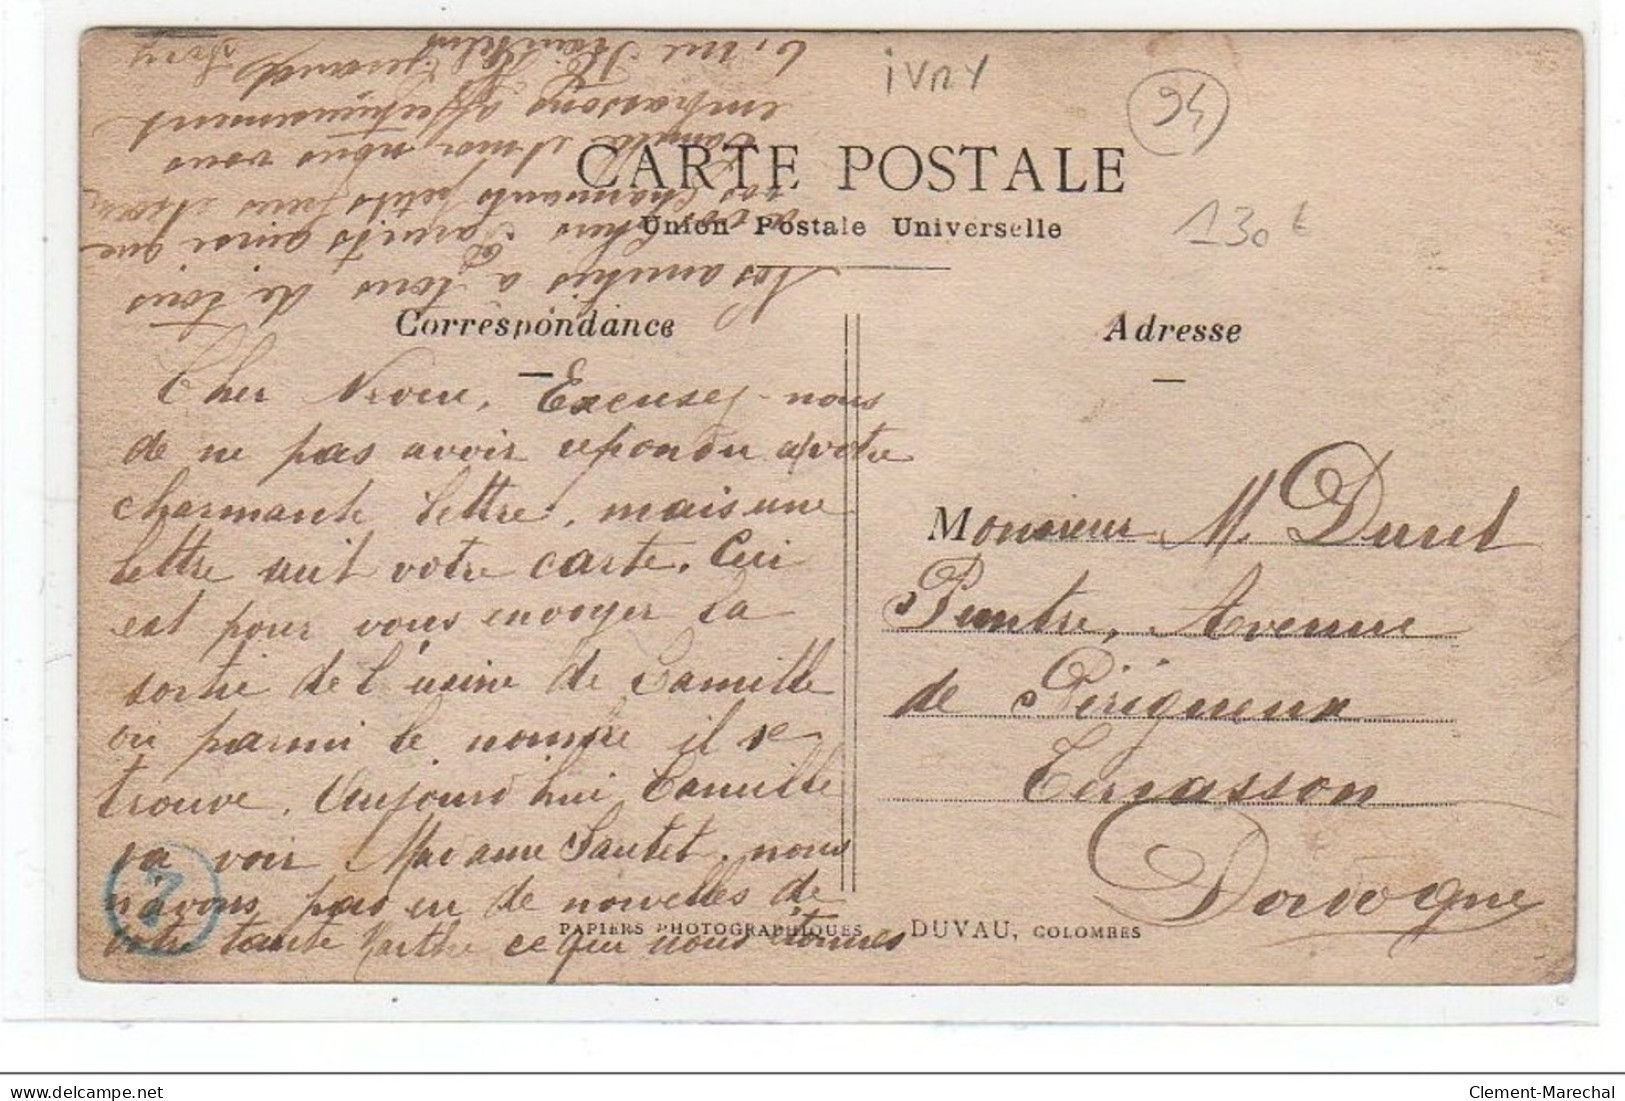 IVRY
94
CARTE POSTALE
Union Postale Universelle
130 €
Correspondance
Adresse
Cher Neveu, Excusez-nous
de ne pas avoir repondu a votre
charmante lettre, mais une
lettre suit votre carte. Ceci
est pour vous envoyer la
sortie de l'usine de Camille
ou parmi le nombre il se
trouve. Aujourd'hui Camille
va voir Madame Sautet, nous
n'avons pas eu de nouvelles de
votre tante Marthe ce qui nous étonnes
Nos amitiés a tous de tous
a vos chers Parents ainsi que
vos charmants petits
Camille et moi, nous vous
embrassons affectueusement
6, rue
Ivry
Monsieur M. Duret
Peintre, Avenue
de Périgueux
Terrasson
Dordogne
PAPIERS PHOTOGRAPHIQUES DUVAU, COLOMBES
delcampe.net
Clement-Marechal